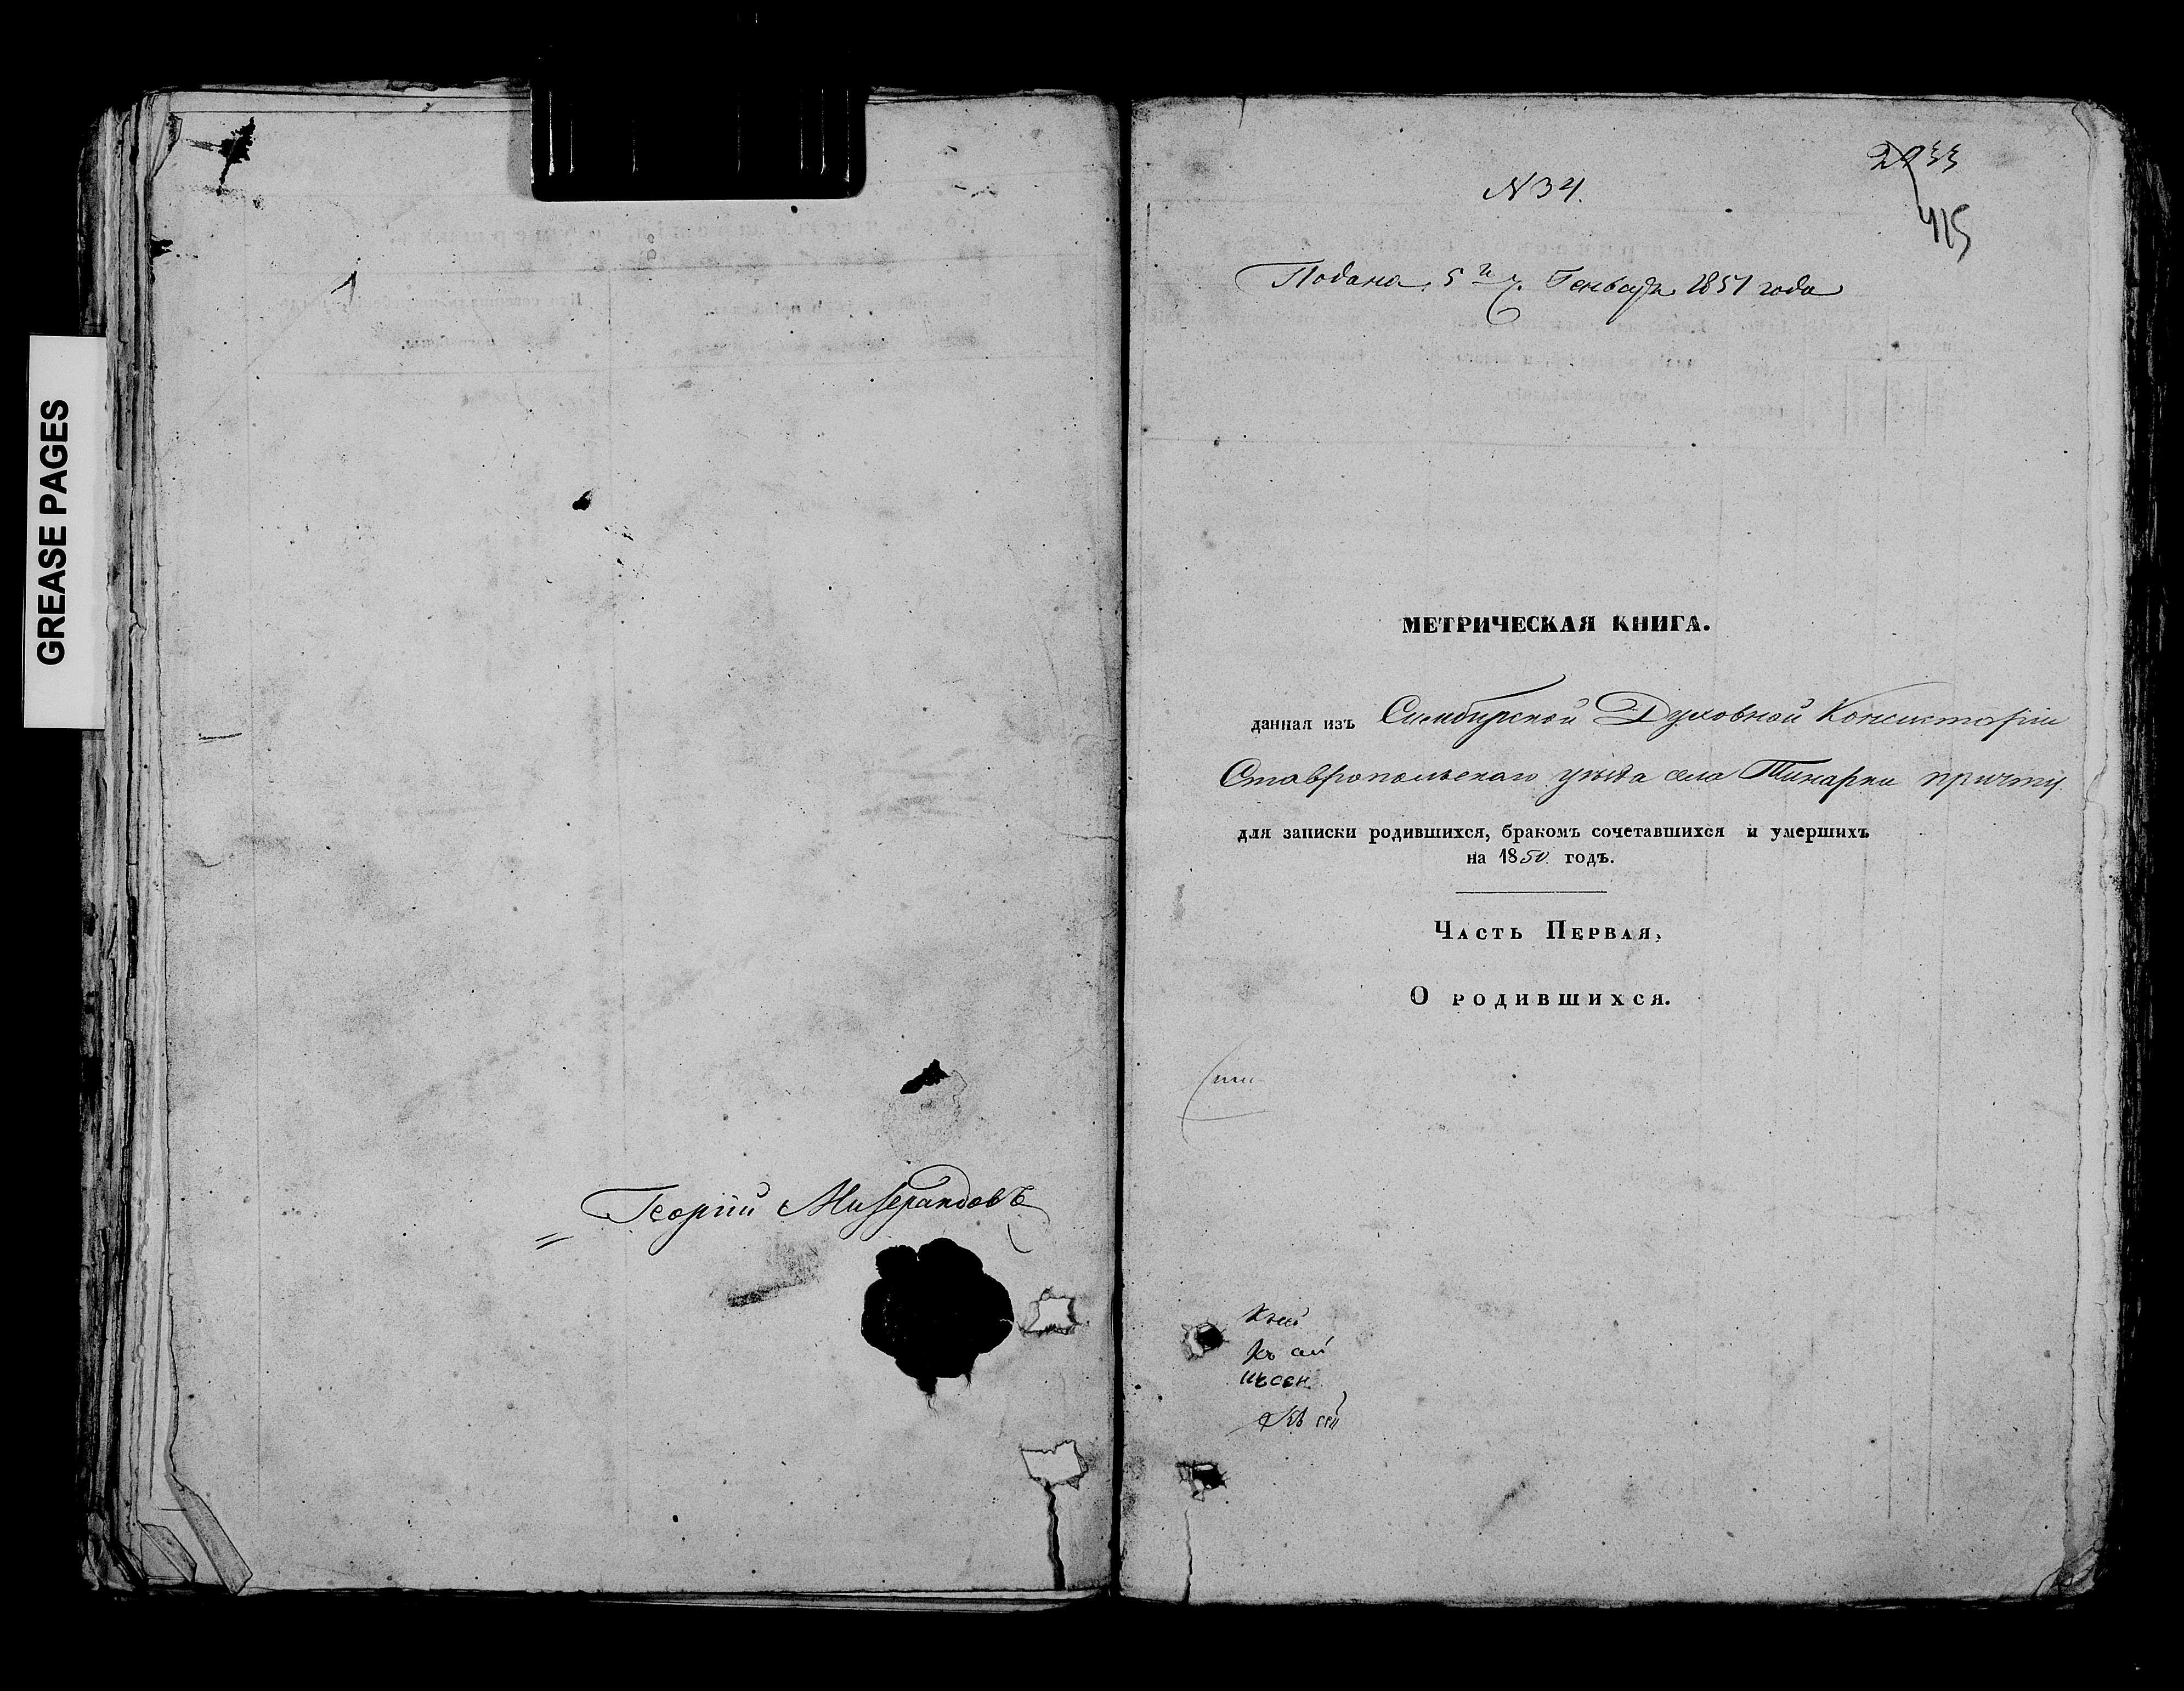 GREASE PAGES
Георгій
N 34.
415
Подана 5го ч. Генваря 1851 года
МЕТРИЧЕСКАЯ КНИГА.
данная изъ Симбирской Духовной Консисторіи
Ставропольскаго уѣзда села Тинарки причту
для записки родившихся, бракомъ сочетавшихся и умершихъ
на 1850 годъ.
Часть Первая,
О родившихся.